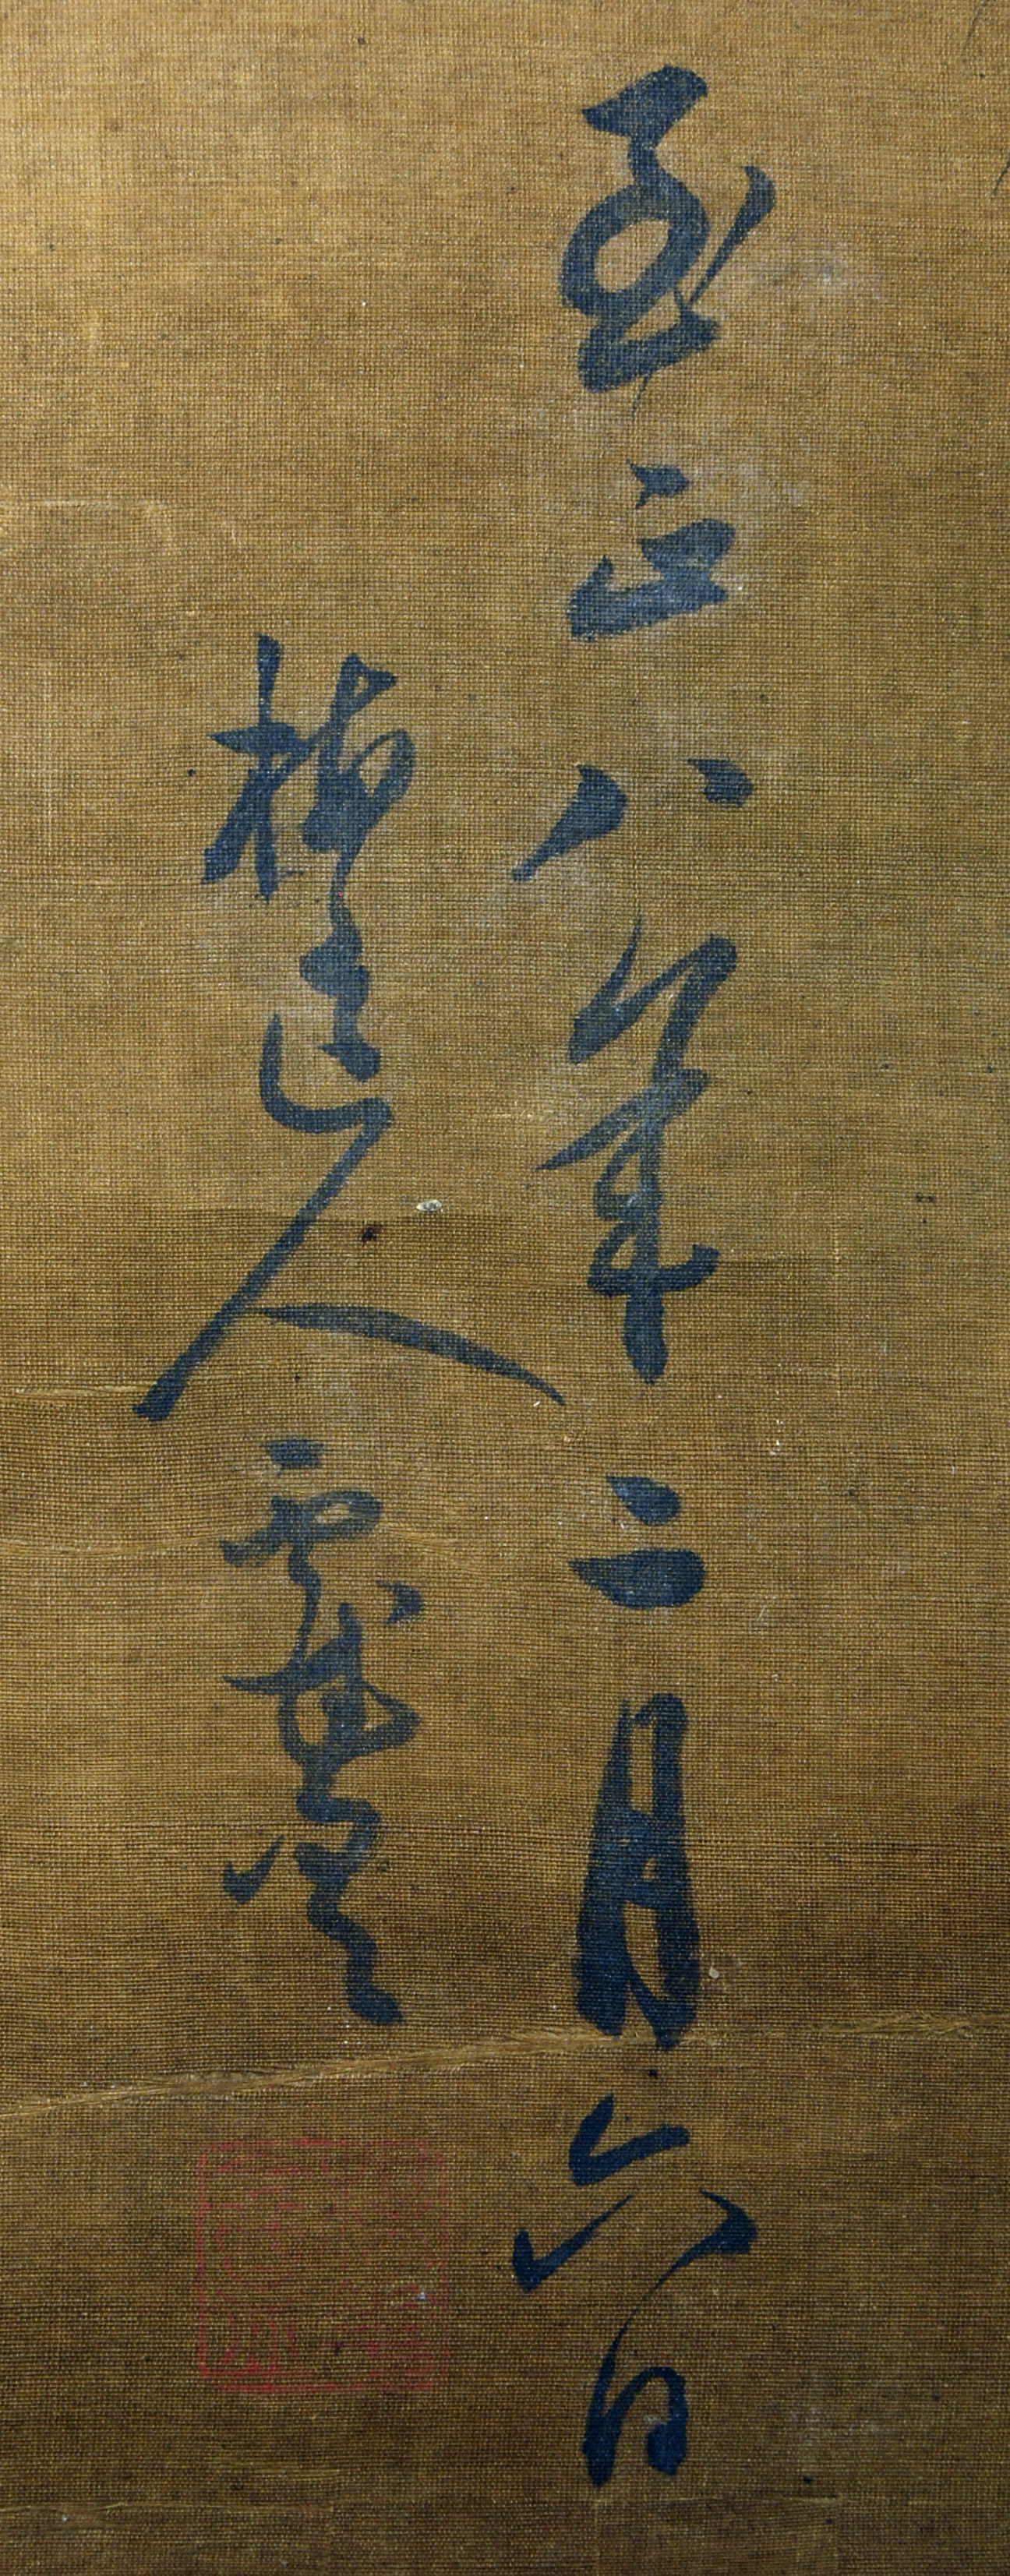 至正八年二月六日
梅道人戲墨